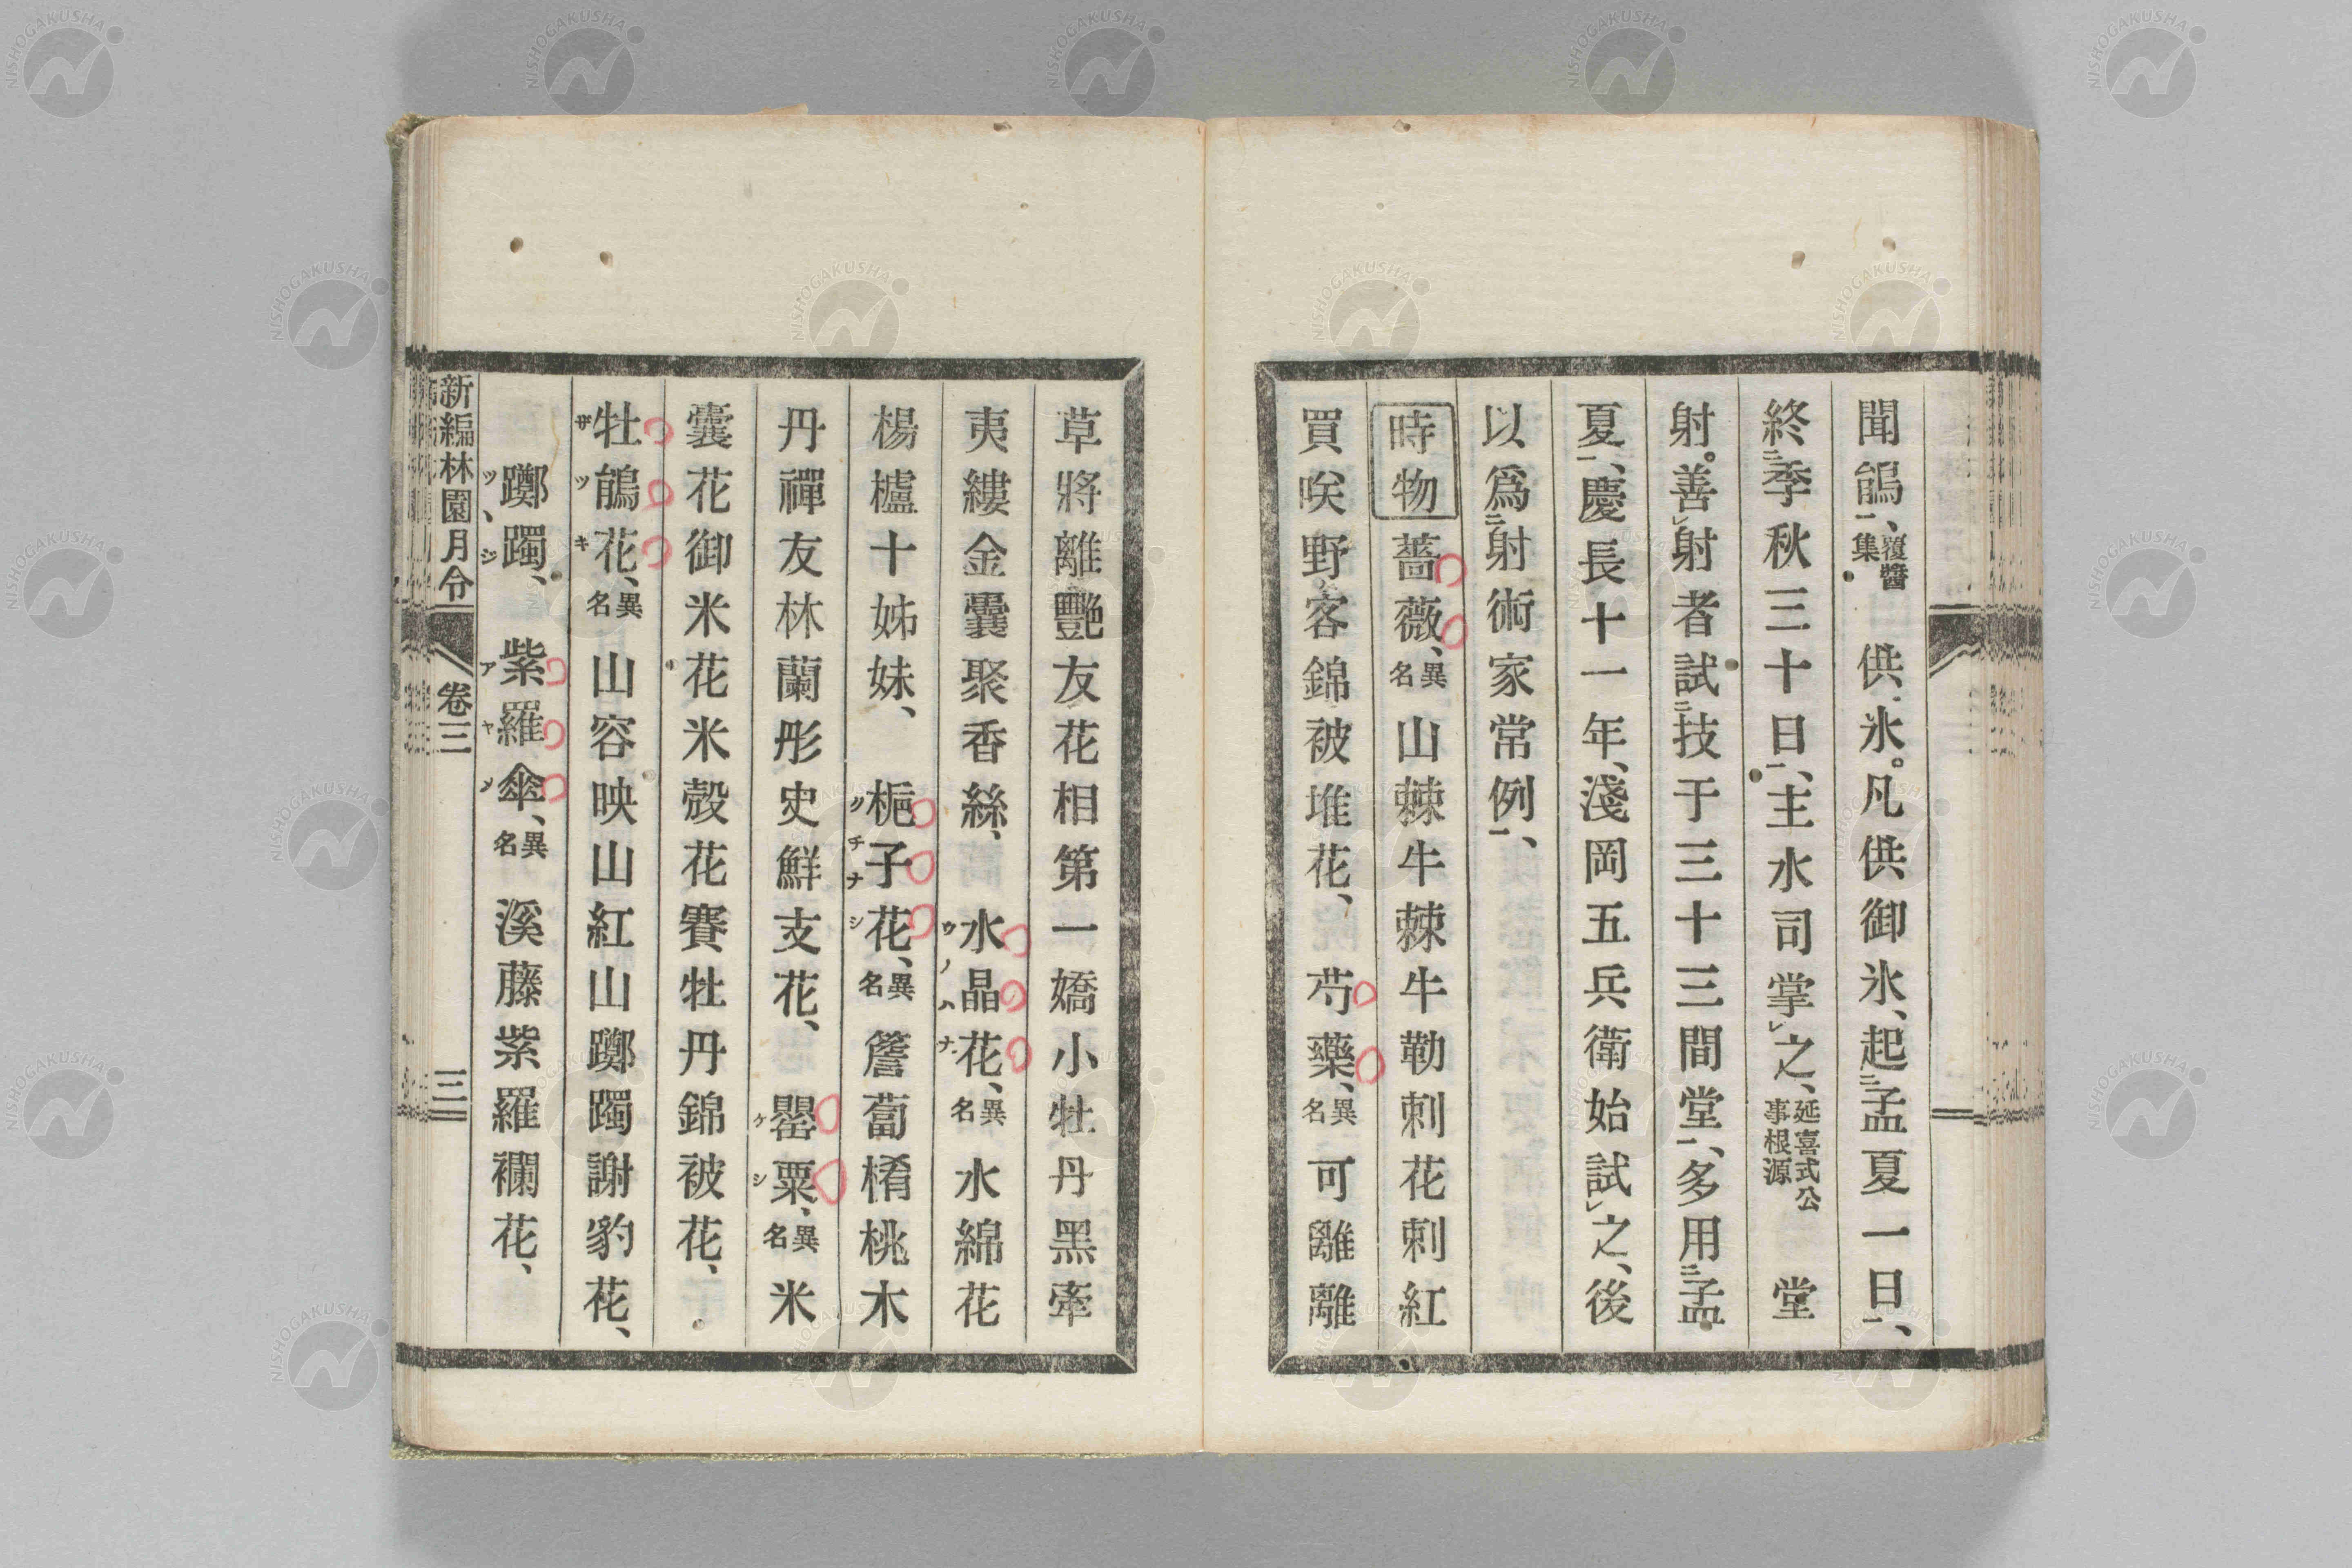 聞鴋、覆醬集　供氷。凡供御氷、起二孟夏一日一、
終二季秋三十日一、主水司掌レ之、延喜式公事根源　堂
射。善レ射者試二技于三十三間堂一、多用二孟
夏一、慶長十一年、淺岡五兵衛始試レ之、後
以爲二射術家常例一、
時物　薔薇、異名　山棘牛棘牛勒刺花刺紅
買咲野客錦被堆花、　芍藥、異名　可離離
草將離艷友花相第一嬌小牡丹黑牽
夷縷金囊聚香絲、　水晶花、異名　水綿花
ウノハナ
楊櫨十姊妹、　梔子花、異名　簷蔔楢桃木
クチナシ
丹禪友林蘭彤史鮮支花、　罌粟、異名　米
ケシ
囊花御米花米殼花賽牡丹錦被花、
牡鵑花、異名　山容映山紅山躑躅謝豹花、
ザツキ
躑躅、　紫羅傘、異名　溪藤紫羅襴花、
ツヽシ　アヤメ
新編林園月令　卷三　三
NISHOGAKUSHA